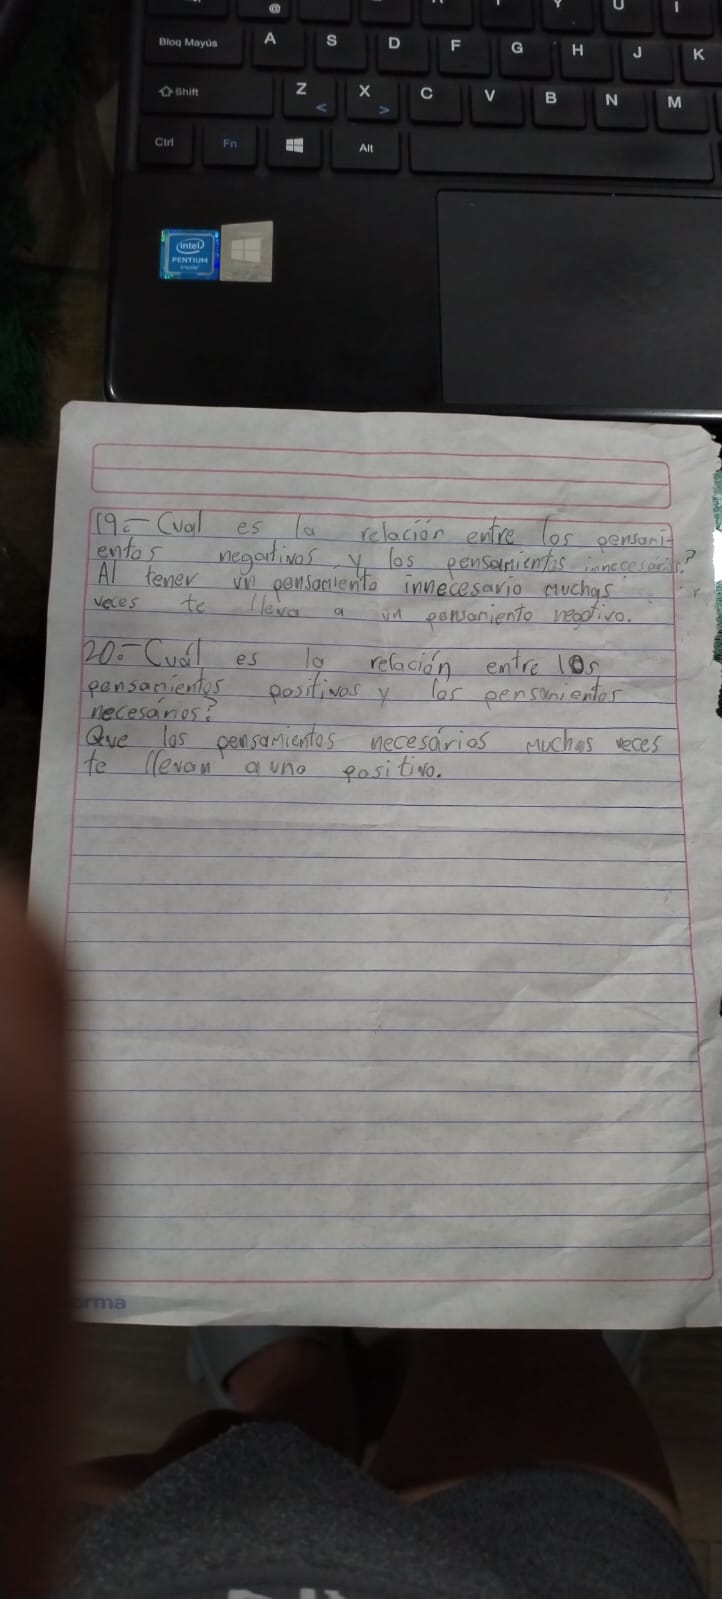 @
U
I
Bloq Mayús
A
S
D
F
G
H
J
K
Shift
Z
X
C
V
B
N
M
<
>
Ctrl
Fn
Alt
intel
PENTIUM
inside
19.- Cual es la relación entre los pensami-
entos negativos y los pensamientos innecesarios?
Al tener un pensamiento innecesario muchas
veces te lleva a un pensamiento negativo.
20.- Cuál es la relación entre los
pensamientos positivos y los pensamientos
necesários?
Que los pensamientos necesários muchas veces
te llevan a uno positivo.
orma